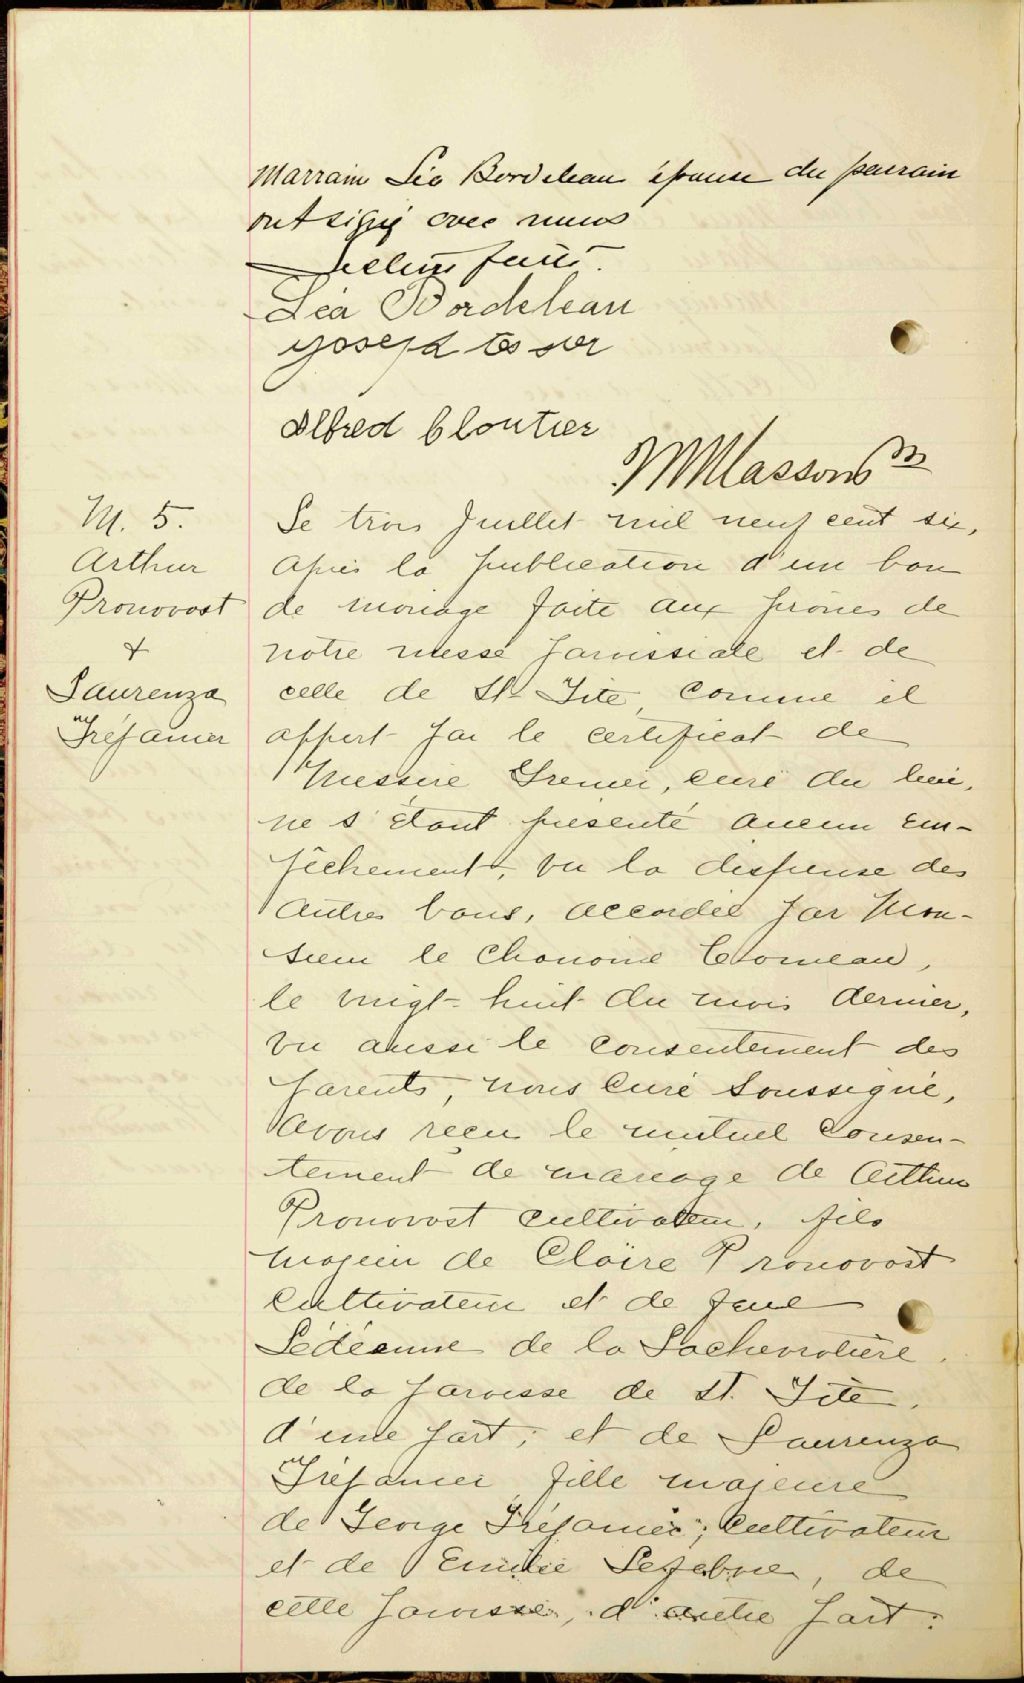 Marraine Léa Bordeleau épouse du parrain
ont signé avec nous
Lecture faite.
Léa Bordeleau
Joseph Tessier
Alfred Cloutier
Masson Ptre
M. 5.
Arthur
Pronovost
+
Laurenza
Trépanier
Le trois Juillet mil neuf cent six,
après la publication d'un ban
de mariage faite aux prônes de
notre messe paroissiale et de
celle de St Tite, comme il
appert par le certificat de
Messire Grenier, curé du lieu,
ne s'étant présenté aucun em-
pêchement, vu la dispense des
autres bans, accordée par Mon-
sieur le Chanoine Comeau,
le vingt-huit du mois dernier,
vu aussi le consentement des
parents, nous Curé soussigné,
avons reçu le mutuel consen-
tement de mariage de Arthur
Pronovost cultivateur, fils
majeur de Claïre Pronovost
cultivateur et de feue
de la Lachevrotière,
de la paroisse de St. Tite,
d'une part; et de Laurenza
Trépanier, fille majeure
de George Trépanier; cultivateur
et de Emilie Lefebvre, de
cette paroisse, d'autre part: